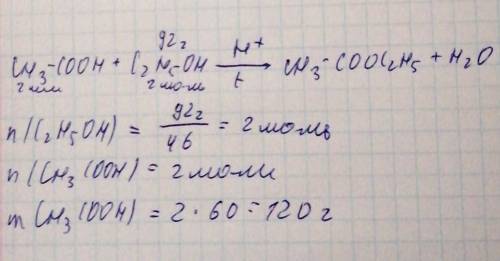 92г
CH3-COOH + C2H5-OH H+ t → CH3-COOC2H5 + H2O
2 моль 2 моль
n(C2H5OH) = 92г/46 = 2 моль
n(CH3COOH) = 2 моли
m CH3COOH) = 2·60 = 120г